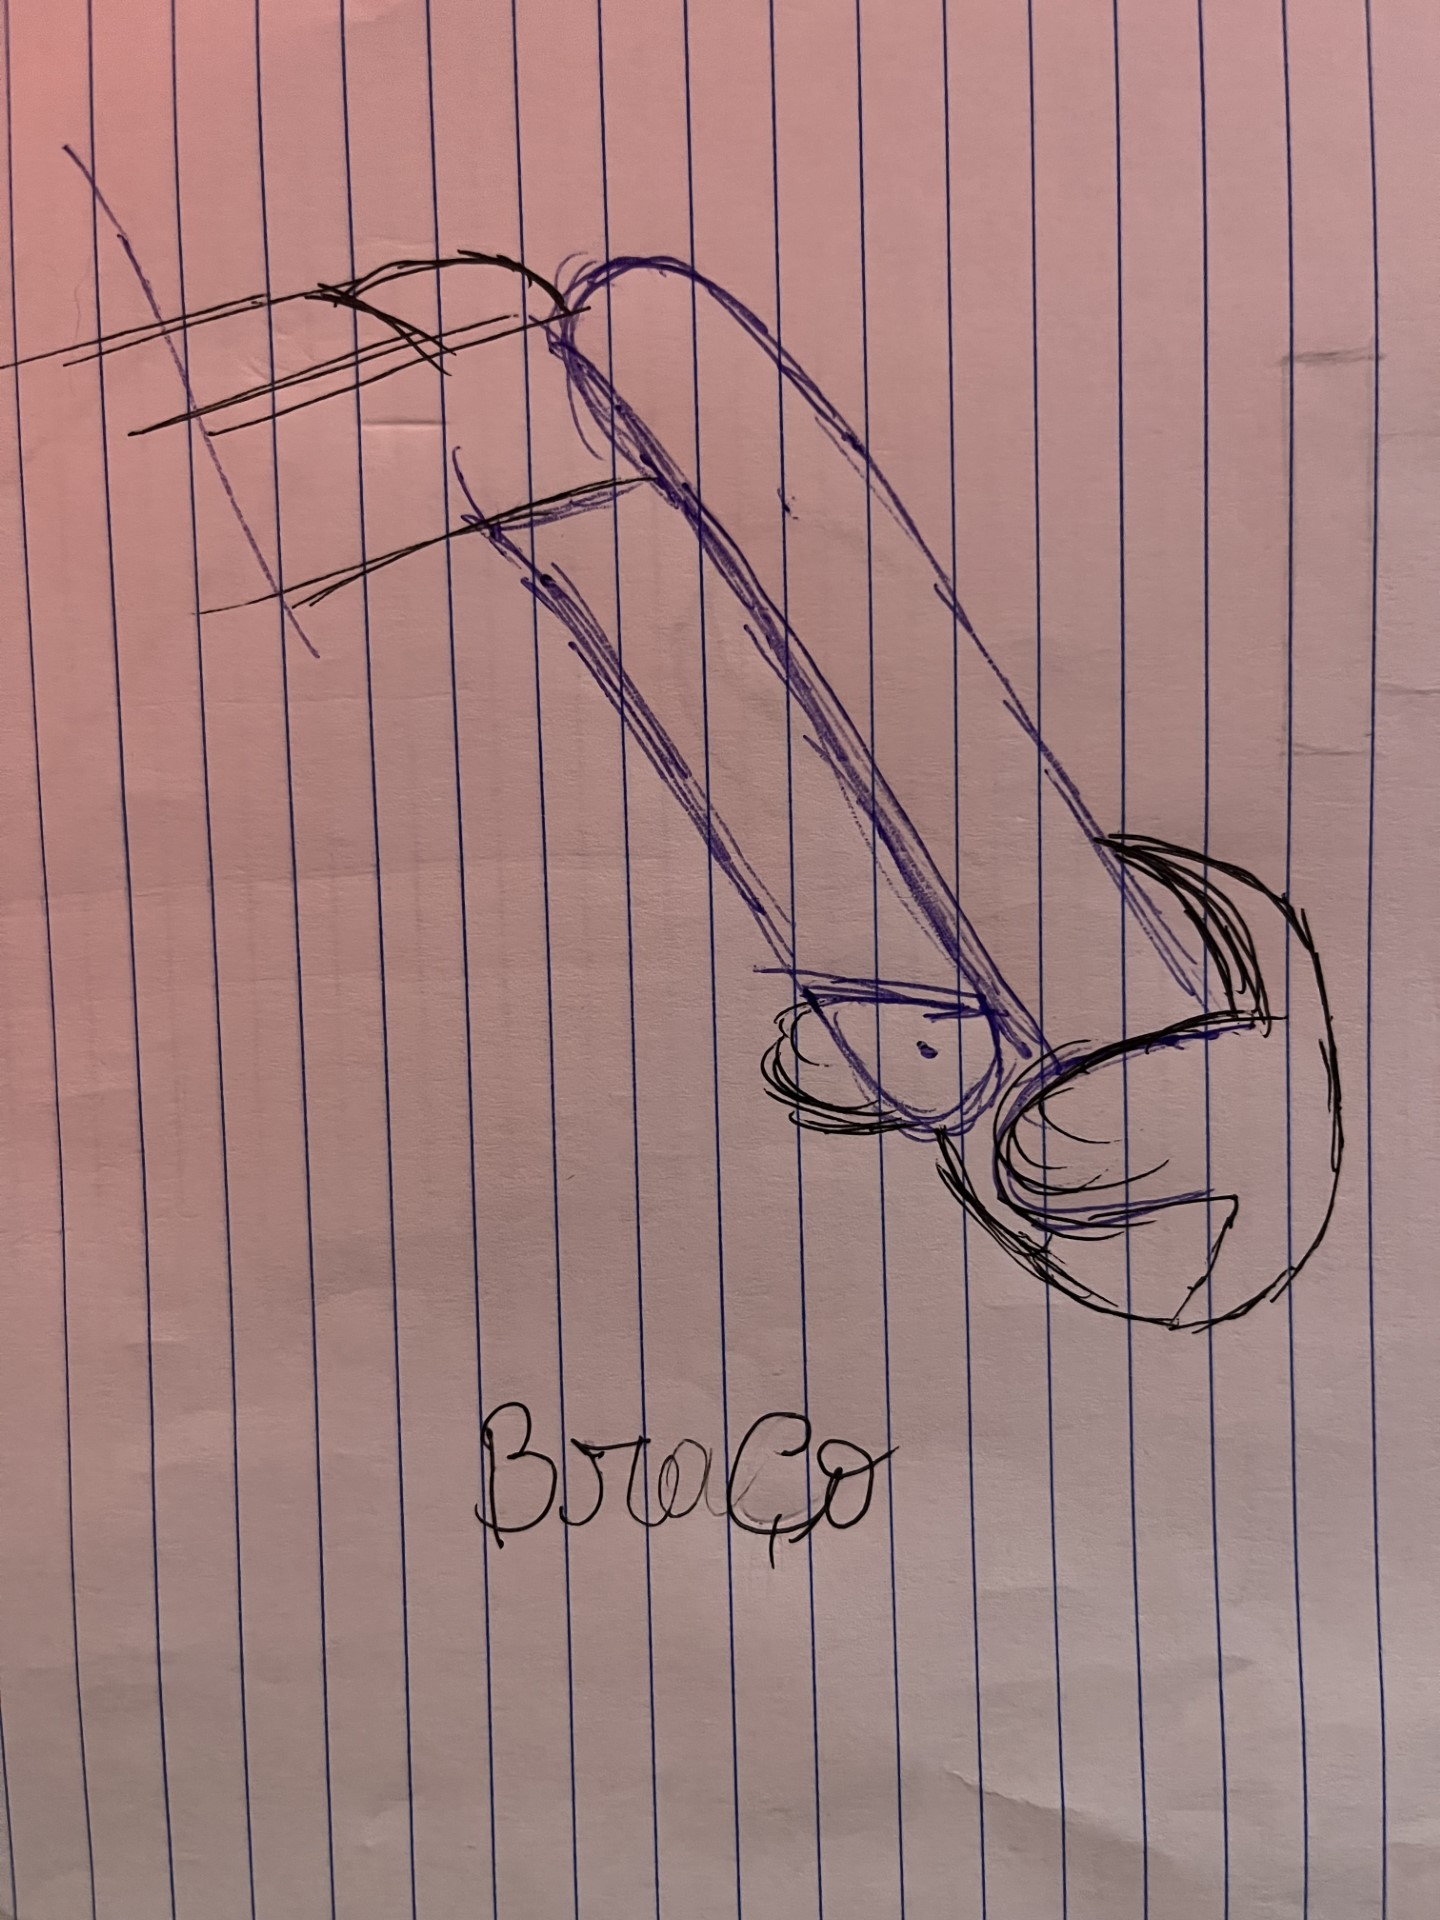 Braço